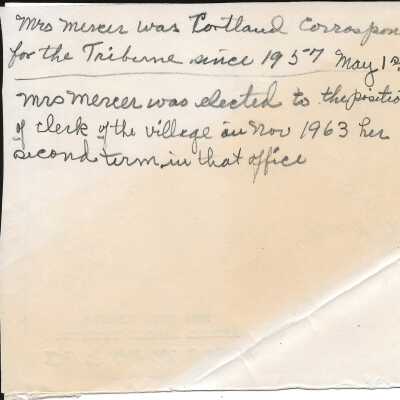 Mrs Mercer was Portland Correspon
for the Triberne since 1957 May 1st
Mrs Mercer was elected to the positio
of clerk of the village in Nov 1963 her
second term in that office